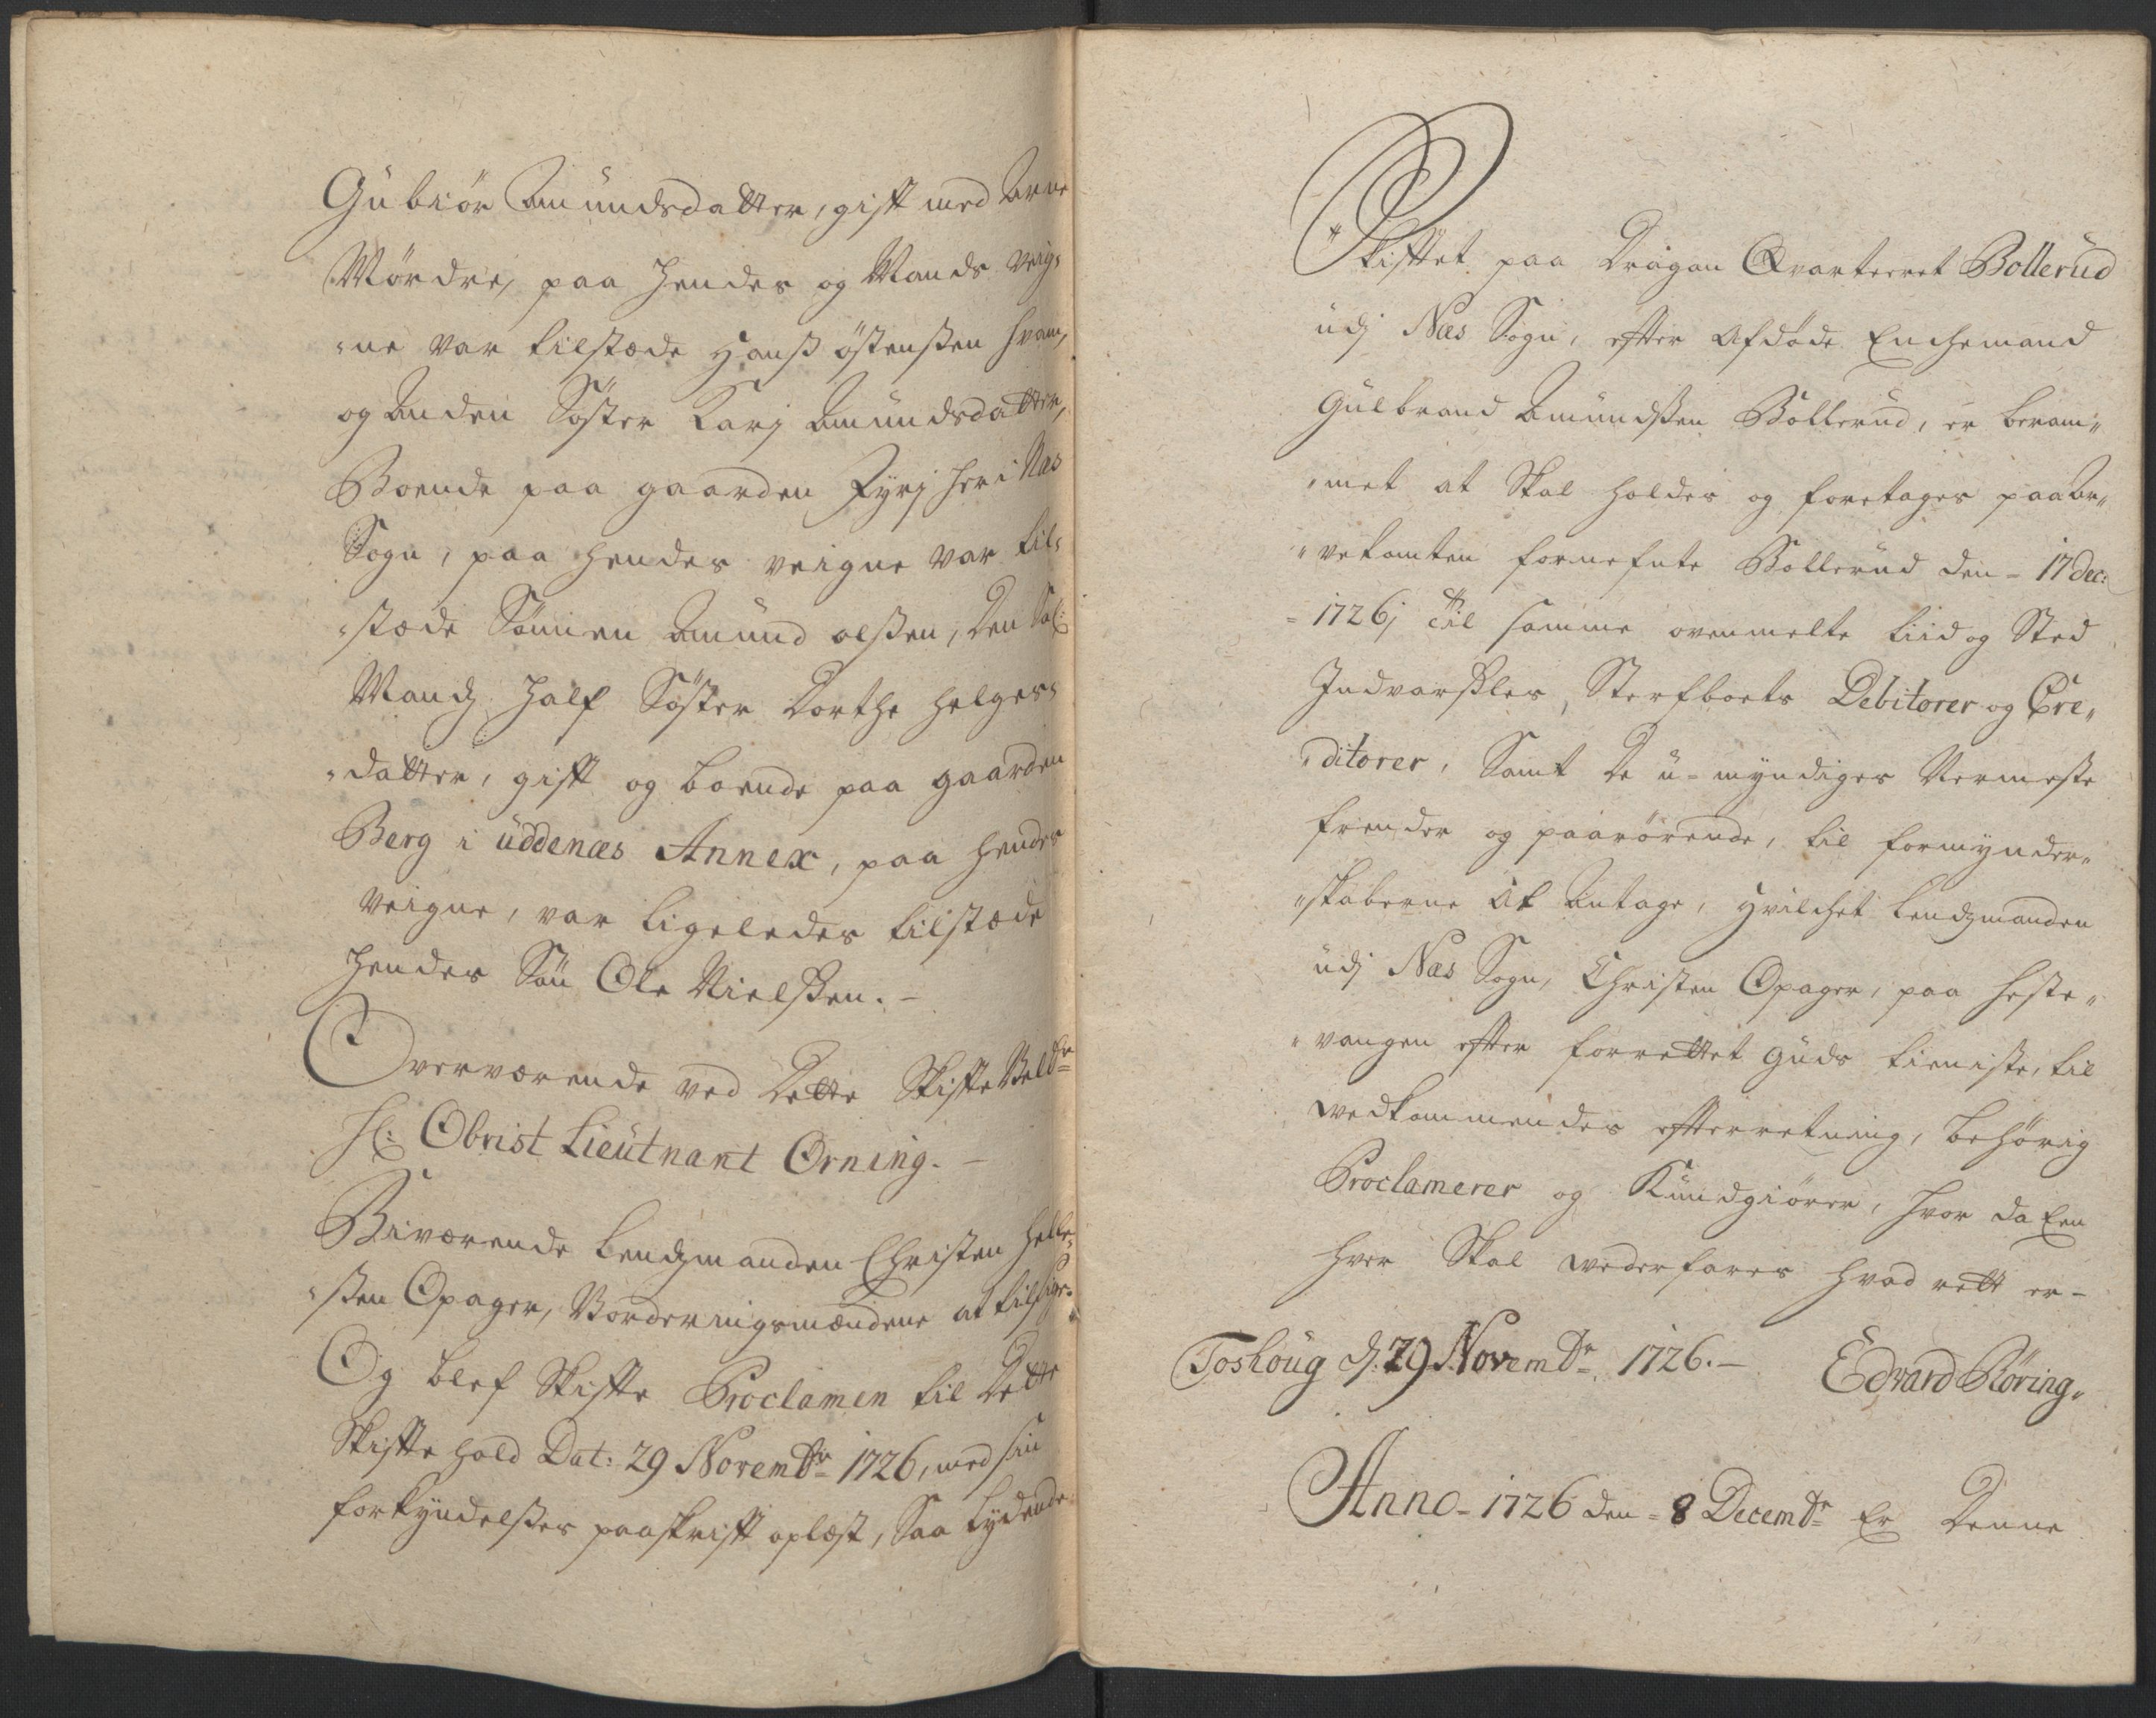 Gubiör Amundsdatter, gift med Arne
Mördre, paa hendes og Mands veig,
„ne var tilstæde Hanß östenßen Hvam,
og Anden Søster Kari Amundsdatter,
Boende paa gaarden Fyri her i Næs
Sogn, paa hendes veigne var til,
„stæde Sönnen Amund olßen, Den Sal:
Mands Half Søster Dorthe Helges,
„datter, gift og boende paa gaarden
Berg i üddenæs Annex, paa hendes
veigne, var ligeledes tilstæde
hendes Sön Ole Nielßen. –
Overværende ved Dette Skifte Velbr
Hl: Obrist Lieutnant Orning. –
Biværende Lendsmanden Christen Helle,
„ßen Opager, Vorderingsmændene at tilsige.
Og blef Skifte Proclamen til Dette
Skifte hold Dat: 29 Novembr 1726, med sin
forkyndelßes paaskrift oplæst, Saa Lydende
Skifftet paa Dragon Qvarteeret Bollerud
udj Næs Sogn, efter Afdøde Enchemand
Gulbrand Amundßen Bollerud, er beram„
„met at Skal holdes og foretages paa be„
„rekamten formefnte Bollerud den – 17 dec:
= 1726; Til samme ovenmelte tiid og Sted
Indvarsles, Sterfboets Debitorer og Cre„
„ditorer, Samt De u-myndiges Nermeste
frender og paarörende, til formynder„
„skaberne At Antage, Hvilchet Lendsmanden
udj Næs Sogn, Christen Opager, paa Heste„
„vangen efter forrettet Guds tieniste, til
wedkommendes efterretning, behörig
Proclamerer og Kundgiörer, hvor da Een
hver Skal wederfares hvad rett er –
Toshoug d: 29 Novembr 1726. – Edvard Röring„
Anno – 1726 den = 8 Decembr Er Denne